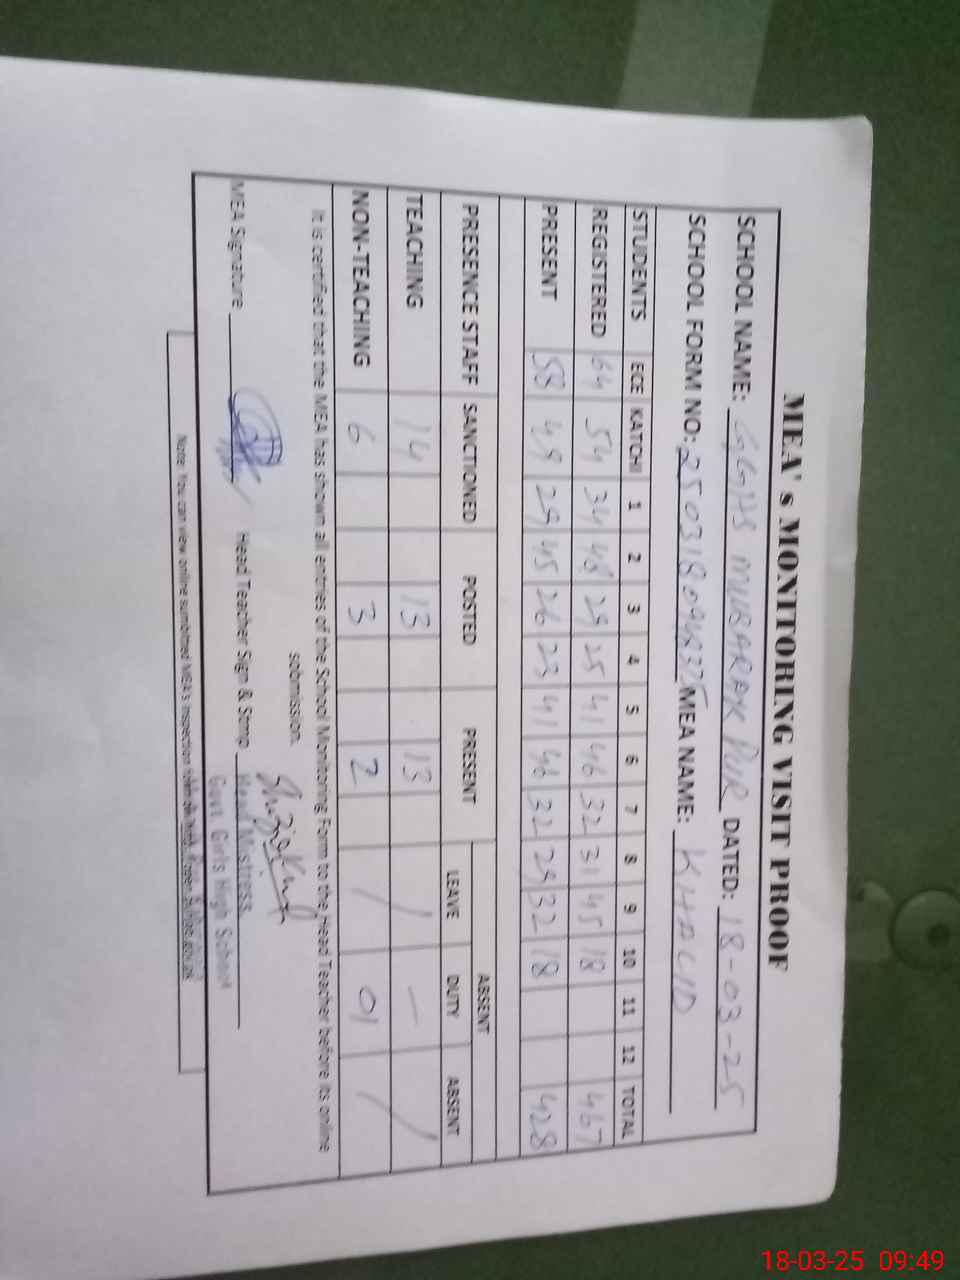 MEA' s MONITORING VISIT PROOF
SCHOOL NAME: GGHS MUBARAK PUR DATED: 18-03-25
SCHOOL FORM NO: MEA NAME: KHALID
STUDENTS ECE KATCHI 1 2 3 4 5 6 7 8 9 10 11 12 TOTAL
REGISTERED 64 54 34 48 29 25 41 46 32 31 45 18 467
PRESENT 58 49 29 45 26 23 41 46 32 29 32 18 428
PRESENCE STAFF SANCTIONED POSTED PRESENT ABSENT
LEAVE DUTY ABSENT
TEACHING 14 13 13 / — /
NON-TEACHING 6 3 2 / 01 /
It is certified that the MEA has shown all entries of the School Monitoring Form to the Head Teacher before its online
submission.
MEA Signature Head Teacher Sign & Stmp
Head Mistress
Govt. Girls High School
Note: You can view online sumbitted MEA's inspection
18-03-25 09:49